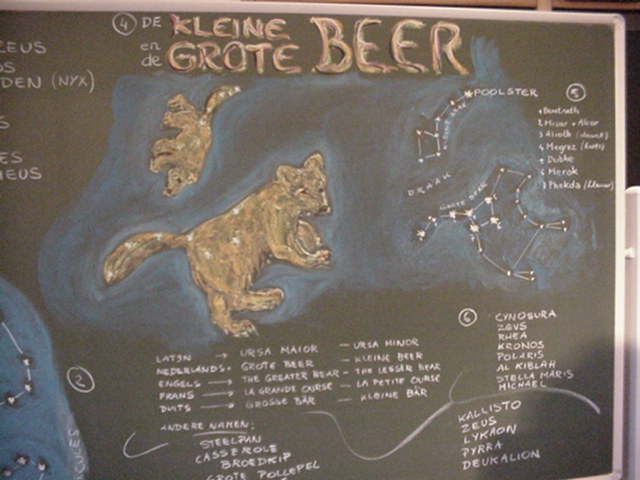 ZEUS
DEN (NYX)
ES
④ DE KLEINE
en de GROTE BEER
POOLSTER
DRAAK
GROTE BEER
⑤
1 Benetnash
2 Mizar + Alcor
3 Alioth
4 Megrez
5 Dubhe
6 Merak
7 Phekda
②
LATIJN → URSA MAIOR – URSA MINOR
NEDERLANDS → GROTE BEER – KLEINE BEER
ENGELS → THE GREATER BEAR – THE LESSER BEAR
FRANS → LA GRANDE OURSE – LA PETITE OURSE
DUITS → GROSSE BÄR – KLEINE BÄR
ANDERE NAMEN:
STEELPAN
CASSEROLE
BROEDKIP
GROTE POLLEPEL
⑥
CYNOSURA
ZEUS
RHEA
KRONOS
POLARIS
AL KIBLAH
STELLA MARIS
MICHAEL
KALLISTO
ZEUS
LYKAON
PYRRA
DEUKALION